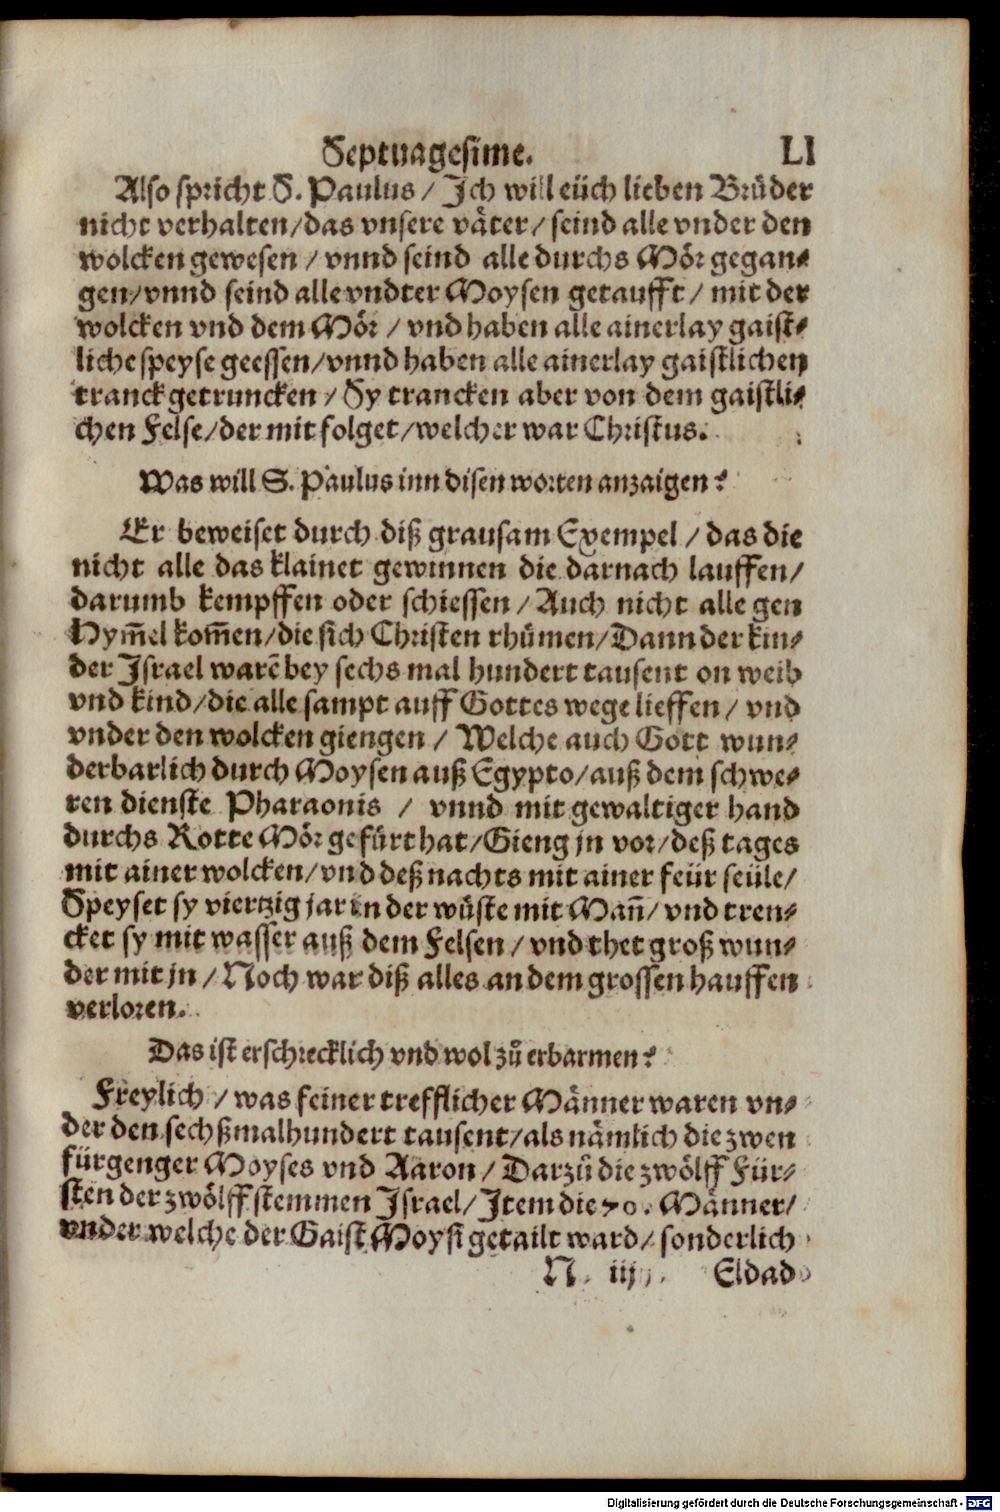 Septuagesime. LI
Also spricht S. Paulus / Ich will eüch lieben Brüder
nicht verhalten / das vnsere väter / seind alle vnder den
wolcken gewesen / vnnd seind alle durchs Mör gegan⸗
gen / vnnd seind alle vndter Moysen getaufft / mit der
wolcken vnd dem Mör / vnd haben alle ainerlay gaist⸗
liche speyse geessen / vnnd haben alle ainerlay gaistlichen
tranck getruncken / Sy trancken aber von dem gaistli⸗
chen Felse / der mit folget / welcher war Christus.
Was will S. Paulus inn disen worten anzaigen?
Er beweiset durch diß grausam Exempel / das die
nicht alle das klainet gewinnen die darnach lauffen /
darumb kempffen oder schiessen / Auch nicht alle gen
Hym̃el kom̃en / die sich Christen rhümen / Dann der kin⸗
der Israel warẽ bey sechs mal hundert tausent on weib
vnd kind / die alle sampt auff Gottes wege lieffen / vnd
vnder den wolcken giengen / Welche auch Gott wun⸗
derbarlich durch Moysen auß Egypto / auß dem schwe⸗
ren dienste Pharaonis / vnnd mit gewaltiger hand
durchs Rotte Mör gefürt hat / Gieng jn vor / deß tages
mit ainer wolcken / vnd deß nachts mit ainer feür seüle /
Speyset sy viertzig jar in der wüste mit Mañ / vnd tren⸗
cket sy mit wasser auß dem Felsen / vnd thet groß wun⸗
der mit jn / Noch war diß alles an dem grossen hauffen
verloren.
Das ist erschrecklich vnd wol zů erbarmen?
Freylich / was feiner trefflicher Männer waren vn⸗
der den sechßmalhundert tausent / als nämlich die zwen
fürgenger Moyses vnd Aaron / Darzů die zwölff Für⸗
sten der zwölff stemmen Israel / Item die 70. Männer /
vnder welche der Gaist Moysi getailt ward / sonderlich
N iij Eldad
Digitalisierung gefördert durch die Deutsche Forschungsgemeinschaft - DFG